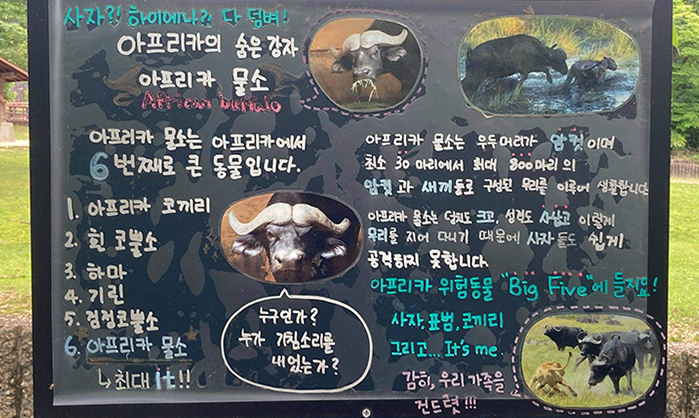 사자?! 하이에나?! 다 덤벼!
아프리카의 숨은 강자
아프리카 물소
African buffalo
아프리카 물소는 아프리카에서
6 번째로 큰 동물입니다.
1. 아프리카 코끼리
2. 흰 코뿔소
3. 하마
4. 기린
5. 검정코뿔소
6. 아프리카 물소
↳ 최대 it!!
누구인가?
누가 기침소리를
내었는가?
아프리카 물소는 우두머리가 암컷이며
최소 30마리에서 최대 300마리의
암컷과 새끼들로 구성된 무리를 이루어 생활합니다.
아프리카 물소는 덩치도 크고, 성격도 사납고 이렇게
무리를 지어 다니기 때문에 사자들도 쉽게
공격하지 못합니다.
아프리카 위험동물 "Big Five"에 들지요!
사자, 표범, 코끼리
그리고... It's me
감히, 우리 가족을
건드렷!!!